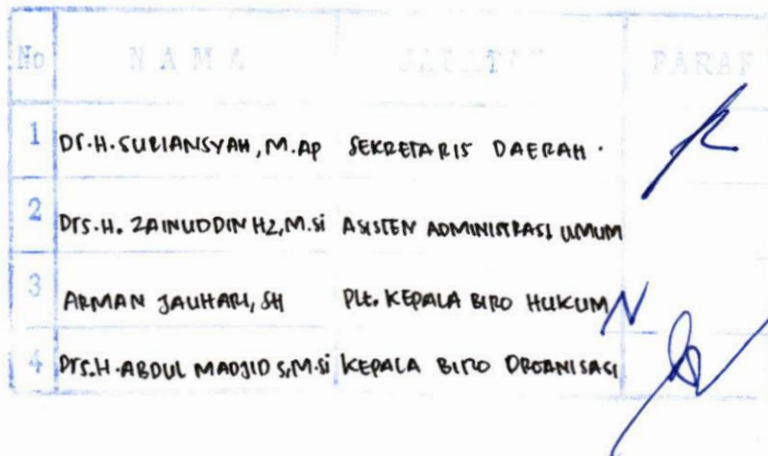 No NAMA JABATAN PARAF
1 Dr.H.SURIANSYAH, M.AP SEKRETARIS DAERAH.
2 Drs.H. ZAINUDDIN HZ, M.Si ASISTEN ADMINISTRASI UMUM
3 ARMAN JAUHARI, SH Plt. KEPALA BIRO HUKUM
4 Drs.H.ABDUL MADJID S, M.Si KEPALA BIRO ORGANISASI